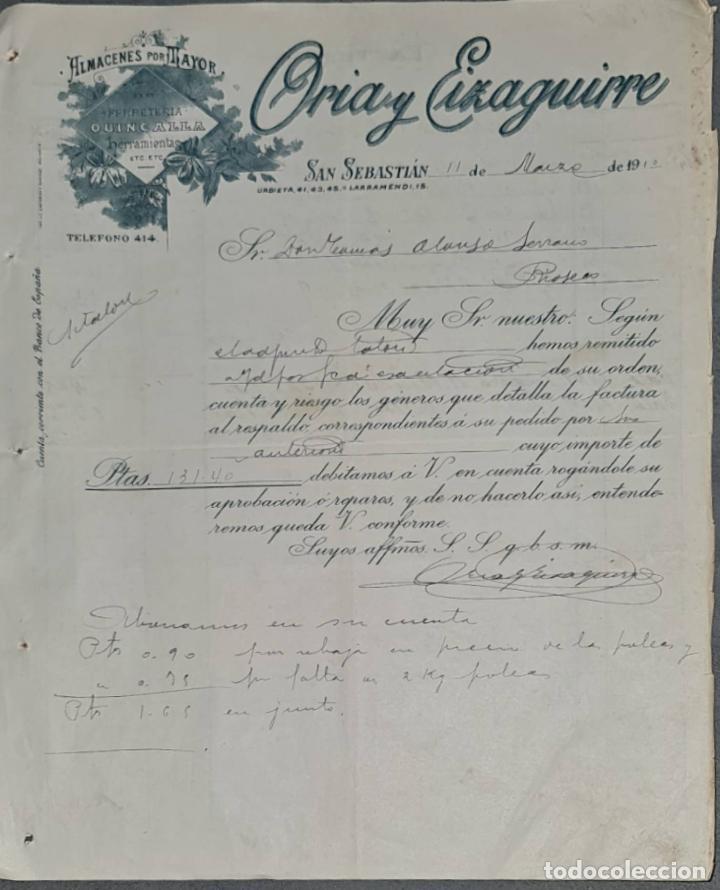 ALMACENES POR MAYOR
FERRETERIA
QUINCALLA
herramientas
ETC. ETC.
TELEFONO 414.
Oria y Eizaguirre
SAN SEBASTIÁN 11 de Marzo de 1910
URBIETA, 41, 43, 45. Y LARRAMENDI, 15.
Sr. Don Tomás Alonso Serrano
Muy Sr. nuestro: Según
hemos remitido
de su orden,
cuenta y riesgo los géneros que detalla la factura
al respaldo, correspondientes á su pedido por
anterior cuyo importe de
Ptas. 131.40 debitamos á V. en cuenta rogándole su
aprobación ó reparos, y de no hacerlo así, entende-
remos queda V. conforme.
Suyos affmos. S. S. q. b. s. m.
Oria y Eizaguirre
Cuenta corriente con el Banco de España
Abonamos en su cuenta
Pts 0.90 por rebaja en precio de las poleas y
" 0.75 por falta de 2 Kg poleas
Pts 1.65 en junto.
todocoleccion.net